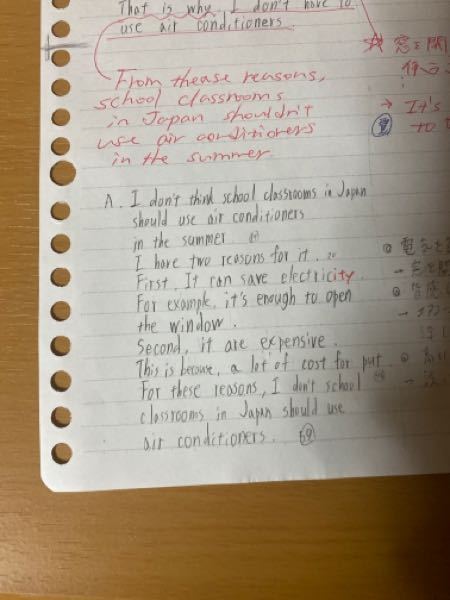 That is why I don't have to
use air conditioners
From thease reasons,
school classrooms
in Japan shouldn't
use air conditioners
in the summer.
☆ 窓を開
→ It's
to
A. I don't think school classrooms in Japan
should use air conditioners
in the summer.
I have two reasons for it.
First, It can save electricity.
For example, it's enough to open
the window.
Second, it are expensive.
This is because, a lot of cost for put
For these reasons, I don't school
classrooms in Japan should use
air conditioners. 69